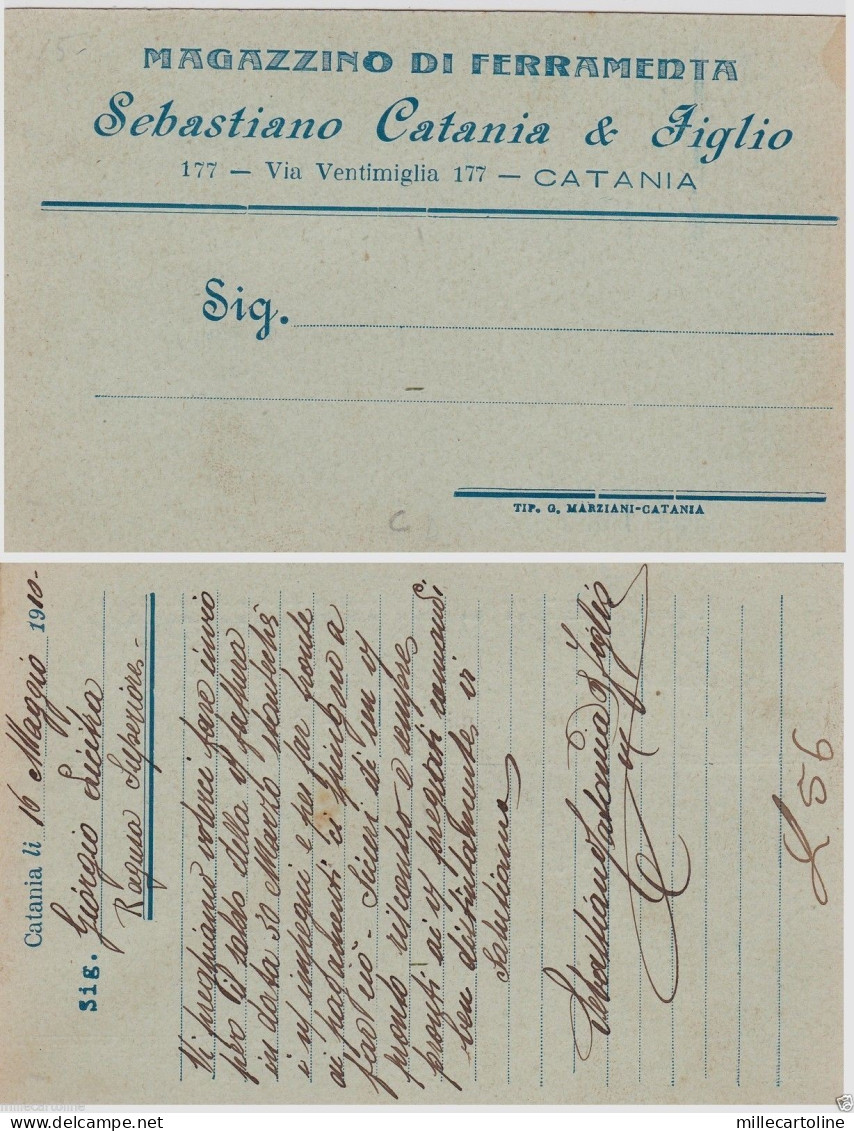 15-
MAGAZZINO DI FERRAMENTA
Sebastiano Catania & Figlio
177 — Via Ventimiglia 177 — CATANIA
Sig.
TIP. G. MARZIANI-CATANIA
C
Catania li 16 Maggio 1910-
Sig. Giorgio
Ragusa Superiore-
Vi preghiamo volerci fare invio
per il saldo della fattura
in data 30 Marzo
e impegni e per far fronte
ai pagamenti ci a
far ciò - Sicuri di un
pronto riscontro e sempre
pronti ai pregiati comandi
ben distintamente vi
salutiamo
Sebastiano Catania & Figlio
L 56
millecartoline
millecartoline